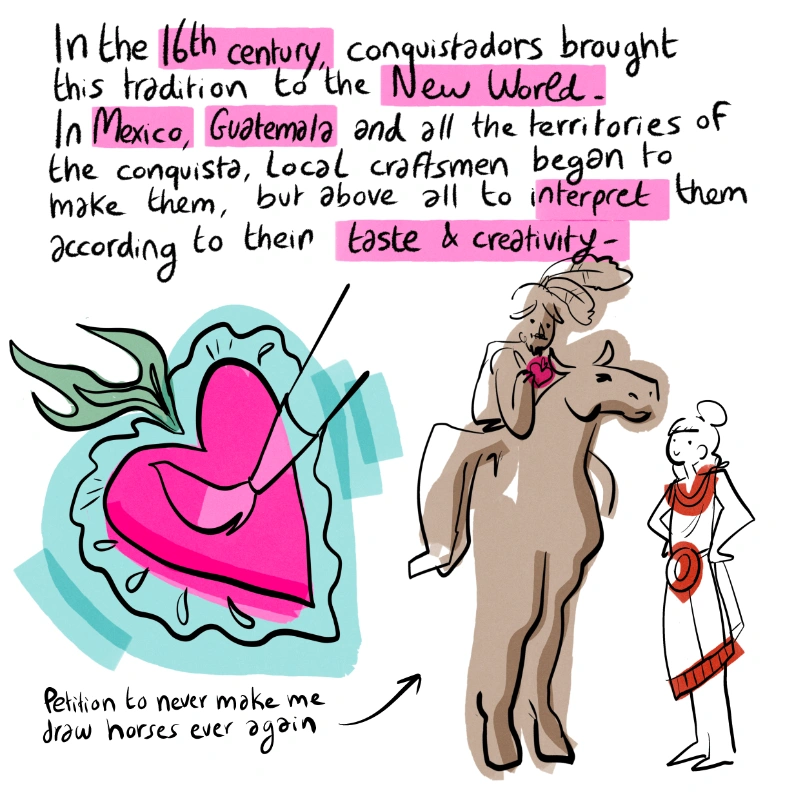 In the 16th century, conquistadors brought
this tradition to the New World.
In Mexico, Guatemala and all the territories of
the conquista, local craftsmen began to
make them, but above all to interpret them
according to their taste & creativity-
Petition to never make me
draw horses ever again